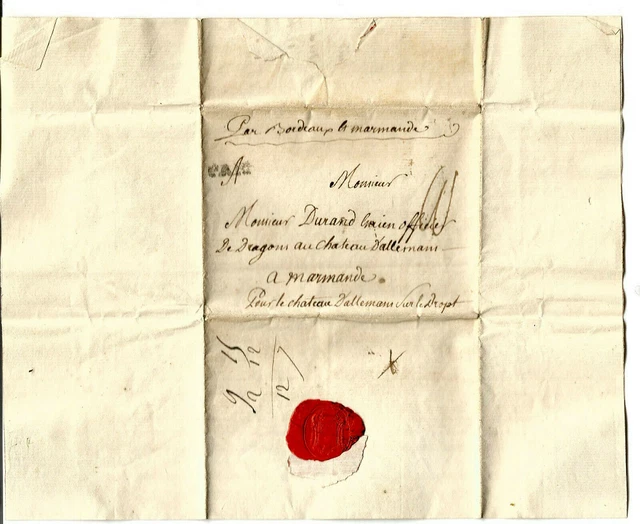 Par Bordeaux et marmande
A
Monsieur
Monsieur Durand Ancien officier
De Dragons au chateau D'allemans
a marmande
Pour le chateau D'allemans Sur le Dropt
15 7
12 12
9
2